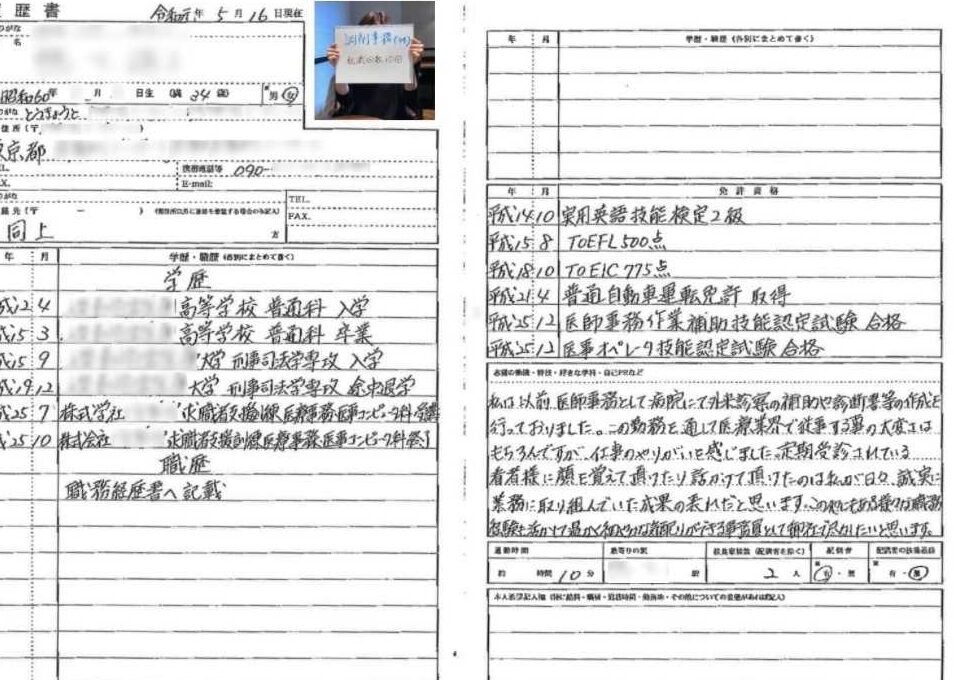 履歴書 令和元年 5月 16日現在
氏名
昭和60年 月 日生 (満 34 歳) 男・女
とうきょうと
住所 (〒 )
東京都
携帯電話等 090-
E-mail:
TEL.
FAX.
連絡先 (〒 - ) (現住所以外に連絡を希望する場合のみ記入)
同上 方
年 月 学歴・職歴 (各別にまとめて書く)
学歴
4 高等学校 普通科 入学
平成15 3 高等学校 普通科 卒業
平成15 9 大学 刑事司法学専攻 入学
平成19 12 大学 刑事司法学専攻 途中退学
平成25 7 株式会社 求職者支援訓練 医療事務医事コンピータ科 受講
平成25 10 株式会社 求職者支援訓練 医療事務医事コンピータ科 終了
職歴
職務経歴書へ記載
年 月 学歴・職歴 (各別にまとめて書く)
年 月 免許資格
平成14.10 実用英語技能検定2級
平成15 8 TOEFL 500点
平成18.10 TOEIC 775点
平成21.4 普通自動車運転免許 取得
平成25.12 医師事務作業補助技能認定試験 合格
平成25.12 医事オペレータ技能認定試験 合格
志望の動機・特技・好きな学科・自己PRなど
私は以前、医師事務として病院にて外来診察の補助や診断書等の作成を
行っておりました。この勤務を通して医療業界で従事する事の大変さは
もちろんですが、仕事のやりがいを感じました。定期受診されている
患者様に顔を覚えて頂けたり話かけて頂けたのは私が日々、誠実に
業務に取り組んでいた成果の表れだと思います。この他にもある様々な職務
経験を活かして温かく和やかな気配りができる事務員として御社で尽力したいと思います。
通勤時間 最寄りの駅 扶養家族数 (配偶者を除く) 配偶者 配偶者の扶養義務
約 時間 10分 駅 2人 有・無 有・無
本人希望記入欄